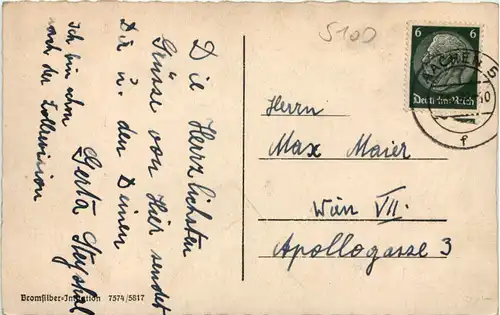 Die Herzlichsten
Grüsse von Hier sendet
Dir u. den Deinen
Gerta
Ich bin schon
nach der
5100
6 6
Deutsches Reich
AACHEN 5
f
Herrn
Max Maier
Wien VII.
Apollogasse 3
Bromsilber-Imitation 7574/5817